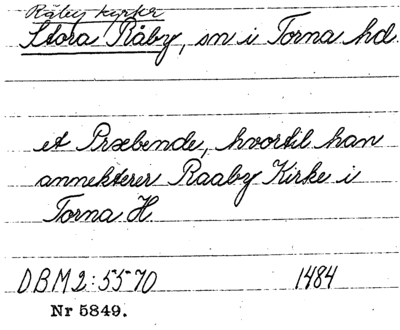 Råby kyrka
Stora Råby, sn i Torna hd
et Præbende, hvortil han
annekterer Raaby Kirke i
Torna H
DBM2:5570 1484
Nr 5849.